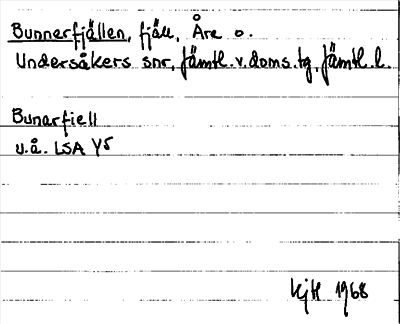 Bunnerfjällen, fjäll, Åre o.
Undersåkers snr, Jämtl. v. doms. tg, Jämtl. l.
Bunarfiell
u.å. LSA Y5
KjH 1968